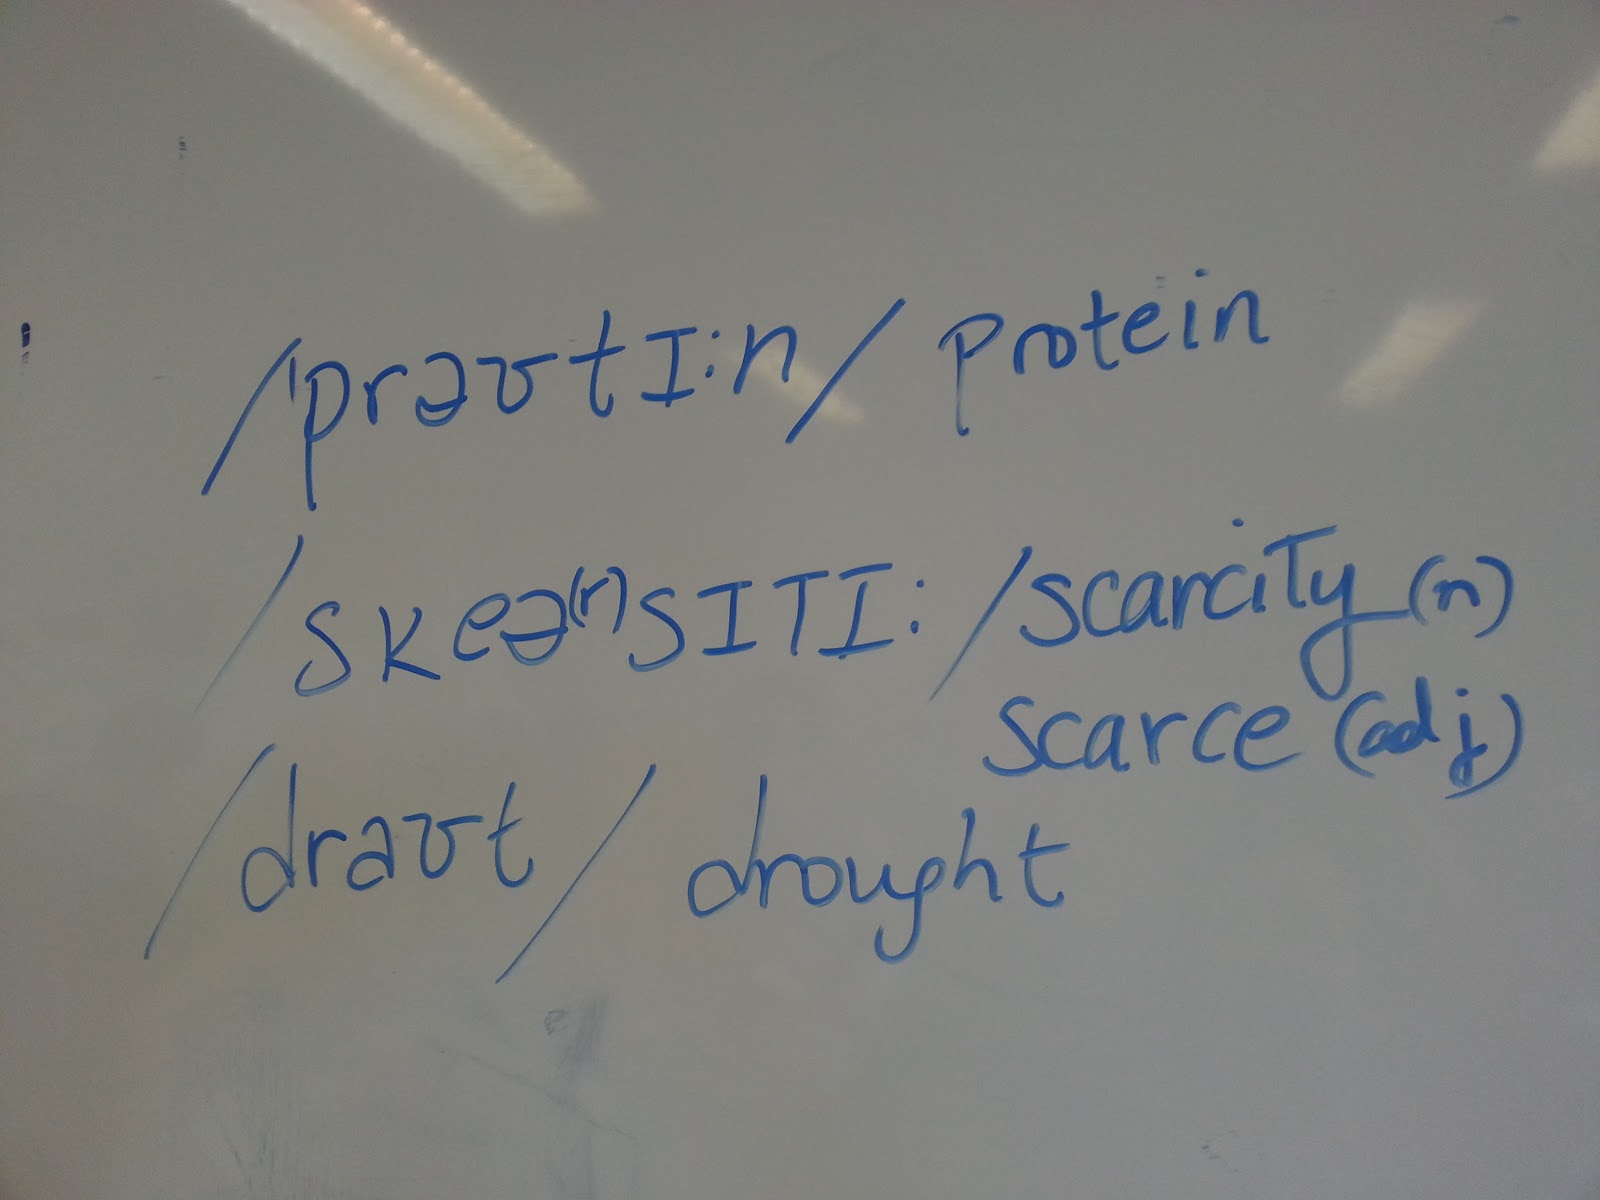 /ˈprəʊtI:n/ protein
/skeə(r)sITI:/ scarcity (n)
scarce (adj)
/draʊt/ drought